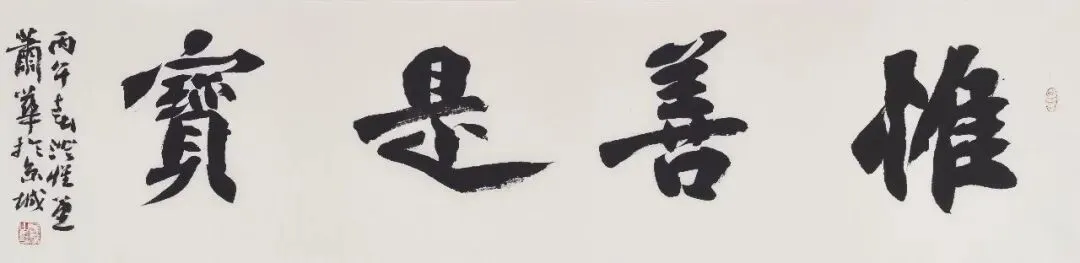 惟善是寶
丙午春
蕭華於京城